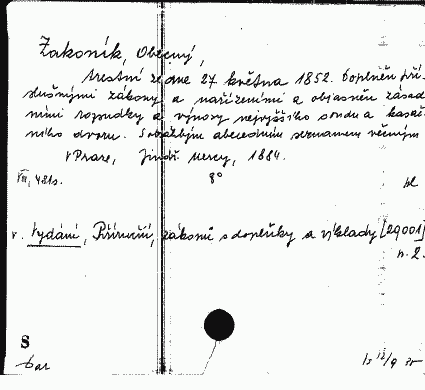 Zákoník, Obecný,
trestní ze dne 27 května 1852. Doplněn pří-
slušnými zákony a nařízeními a objasněn zásad
ními rozsudky a výnosy nejvyššího soudu a kasač
ního dvoru. S obzvláštním abecedním seznamem věcným
v Praze, Jindř. Mercy, 1884.
VIII, 481 s. 8°
v. Vydání, Příruční, zákonů s doplňky a výklady [29001]
n. 2.
S
Dar